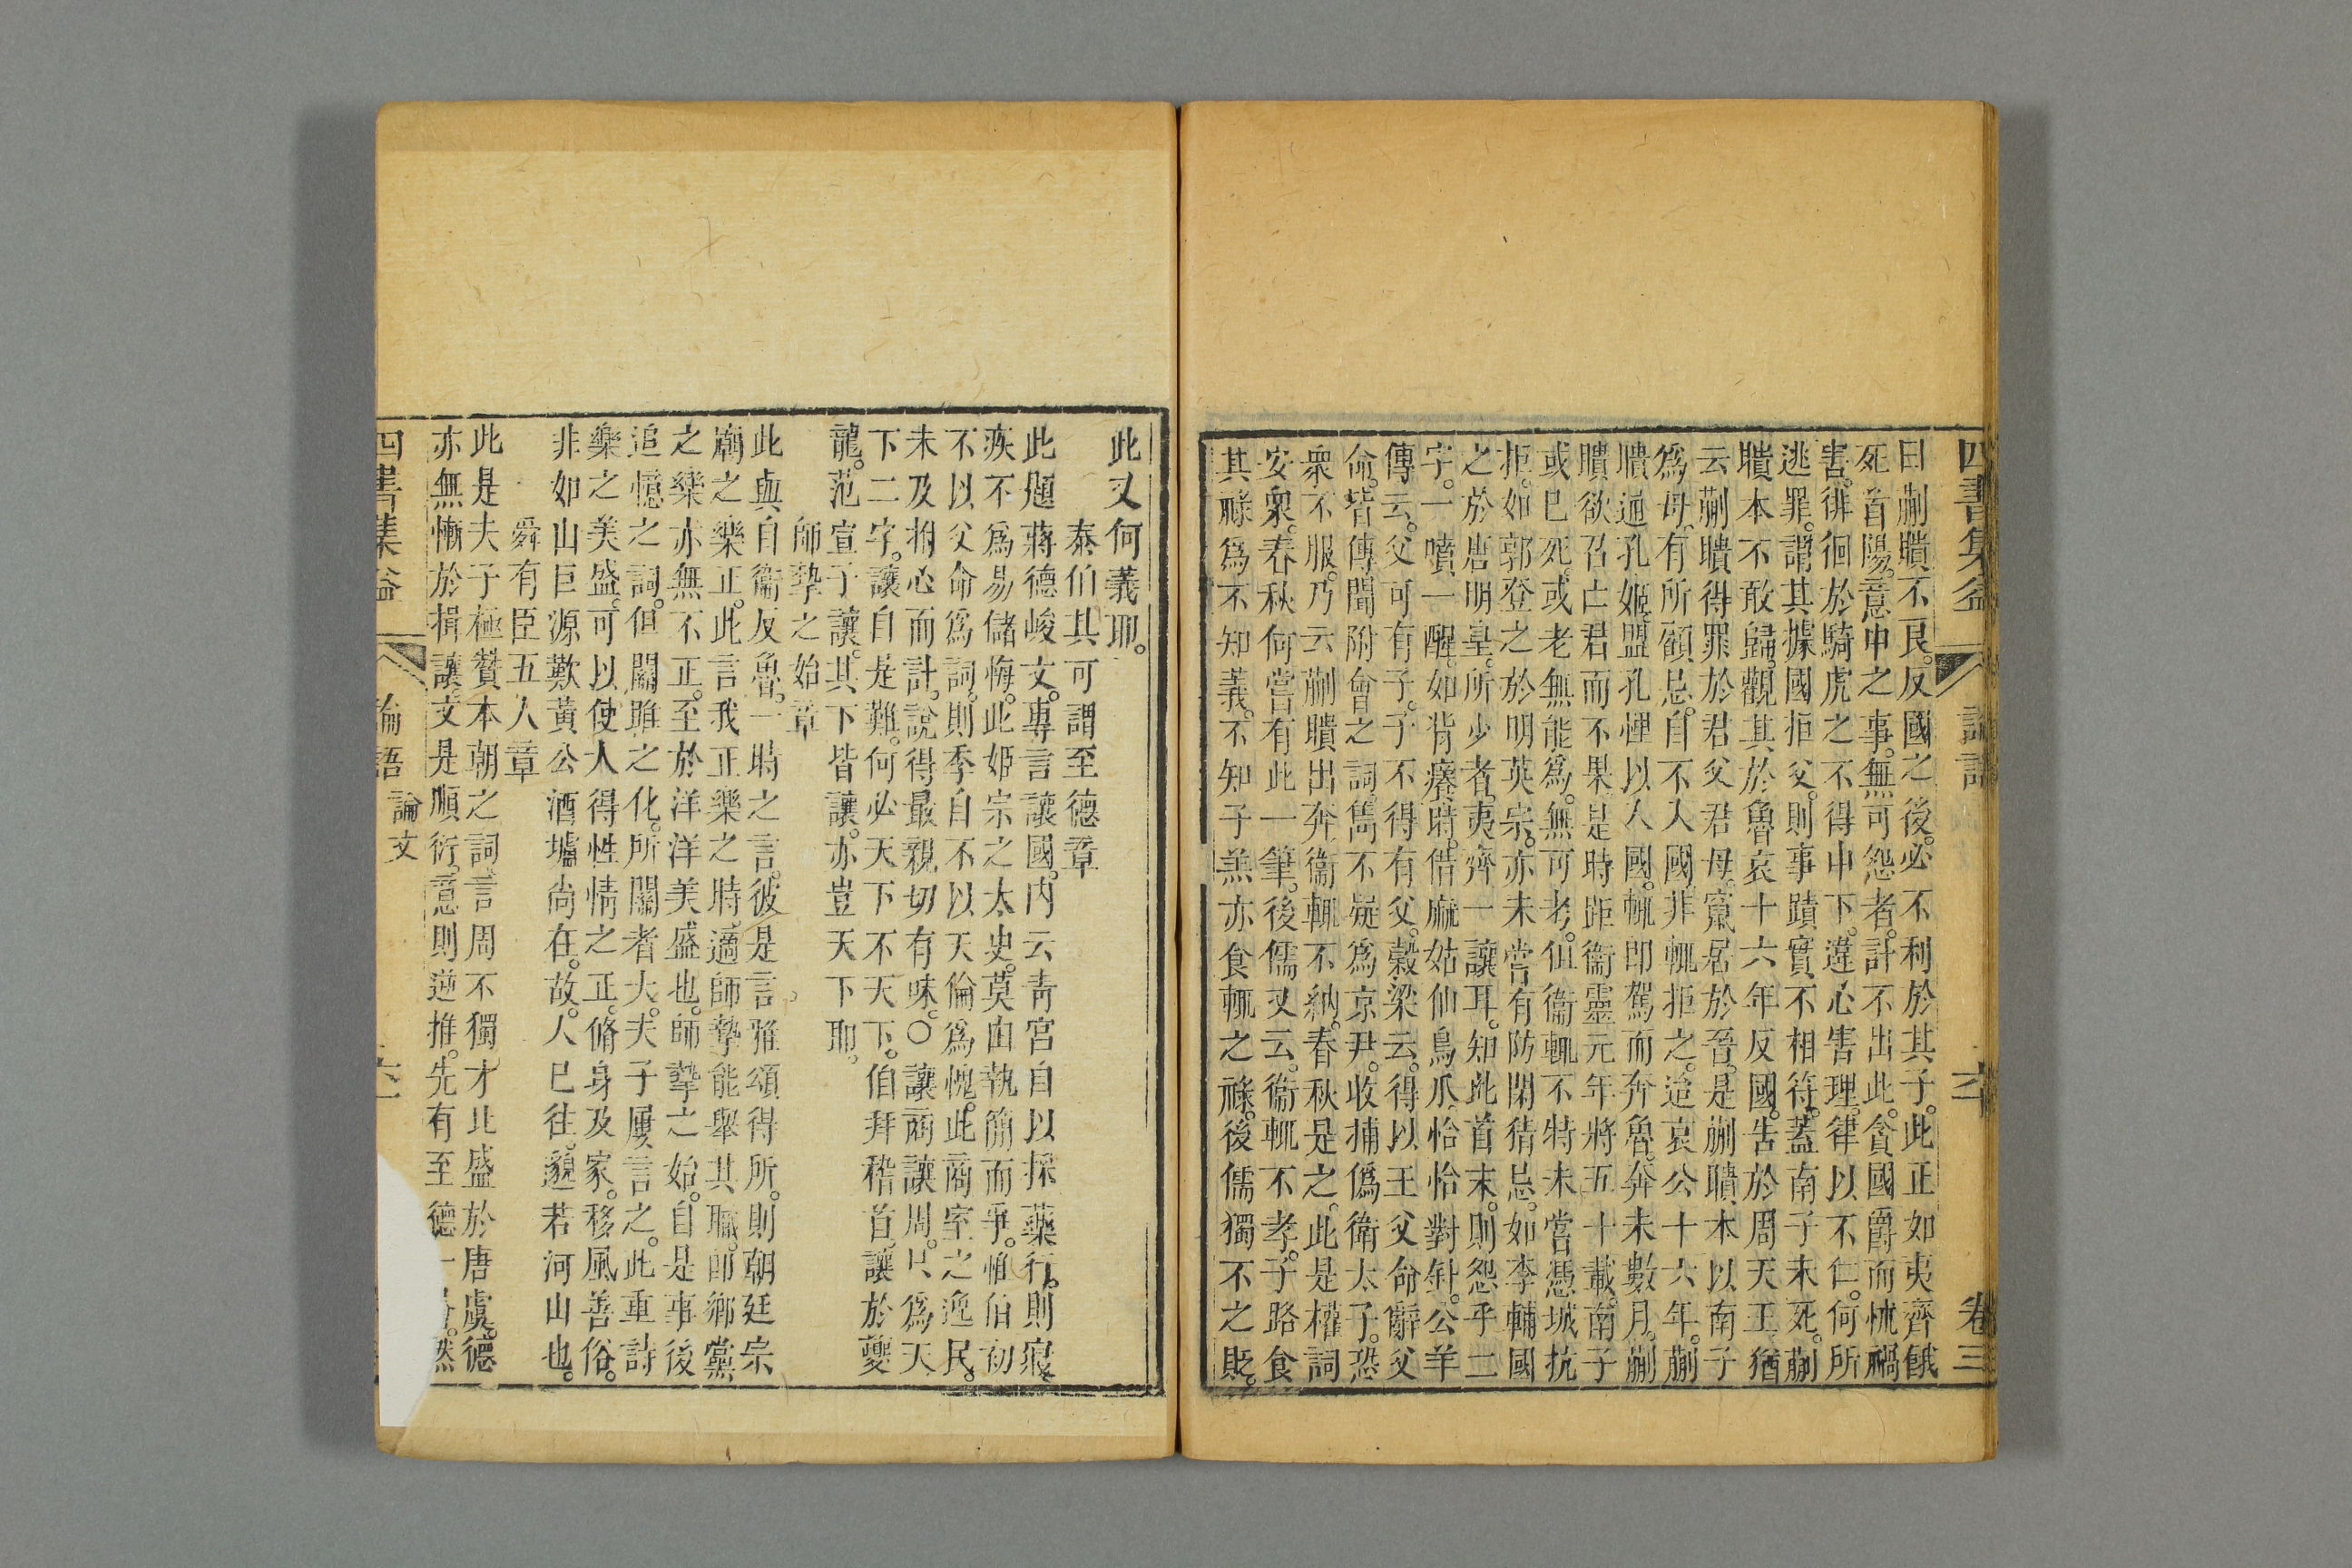 四書集益 論語 卷三
曰蒯聵不良。反國之後。必不利於其子。此正如夷齊餓
死首陽。意中之事。無可怨者。計不出此。貪國爵而忧禍
害。徘徊於騎虎之不得中下。違心害理。律以不仁。何所
逃罪。謂其據國拒父。則事蹟實不相符。蓋南子未死。蒯
聵本不敢歸。觀其於魯哀十六年反國。告於周天王猶
云蒯聵得罪於君父君母。竄居於晉。是蒯聵本以南子
為母。有所顧忌。自不入國。非輒拒之。迨哀公十六年。蒯
聵通孔姬盟孔悝以人國。輒即駕而奔魯。奔未數月。蒯
聵欲召亡君而不果。是時距衞靈元年將五十載。南子
或已死。或老無能為。無可考。但衞輒不特未嘗憑城抗
拒。如郭登之於明英宗。亦未嘗有防閑猜忌。如李輔國
之於唐明皇。所少者。夷齊一讓耳。知此首末。則怨乎二
字。一噴一醒。如背癢時。借麻姑仙鳥爪恰恰對針。公羊
傳云。父可有子。子不得有父。穀梁云。得以王父命辭父
命。皆傳聞附會之詞。雋不疑為京尹。收捕偽衛太子。恐
衆不服。乃云蒯聵出奔衞輒不納。春秋是之。此是權詞
安衆。春秋何嘗有此一筆。後儒又云。衞輒不孝。子路食
其祿為不知義。不知子羔亦食輒之祿。後儒獨不之貶。
此又何義耶。
泰伯其可謂至德章
此題蔣德峻文。專言讓國。内云青宮自以採藥行。則寢
疾不為易儲悔。此姬宗之太史。莫由執簡而爭。惟伯初
不以父命為詞。則季自不以天倫為愧。此商室之逸民。
未及捫心而計。說得最親切有味。○讓商讓周。只為天
下二字。讓自是難。何必天下不天下。伯拜稽首。讓於夔
龍。范宣子讓。其下皆讓。亦豈天下耶。
師摯之始章
此與自衞反魯。一時之言。彼是言雅頌得所。則朝廷宗
廟之樂正。此言我正樂之時。適師摯能舉其職。即鄉黨
之樂亦無不正。至於洋洋美盛也。師摯之始。自是事後
追憶之詞。但關雎之化。所關者大。夫子屢言之。此重詩
樂之美盛。可以使人得性情之正。脩身及家。移風善俗。
非如山巨源歎黃公酒壚尚在。故人已往。邈若河山也。
舜有臣五人章
此是夫子極贊本朝之詞。言周不獨才比盛於唐虞。德
亦無慚於揖讓。文是順衍。意則逆推。先有至德一 然
四書集益 論語 論文